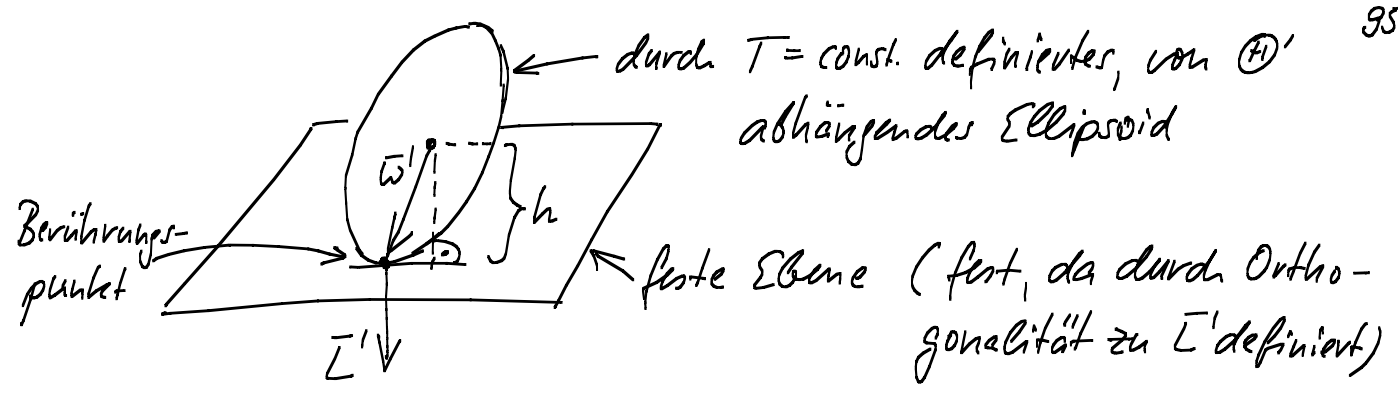 95
durch T = const. definiertes, von Ⓗ'
abhängendes Ellipsoid
ω̄'
h
Berührungs-
punkt
feste Ebene (fest, da durch Ortho-
gonalität zu L̄' definiert)
L̄'